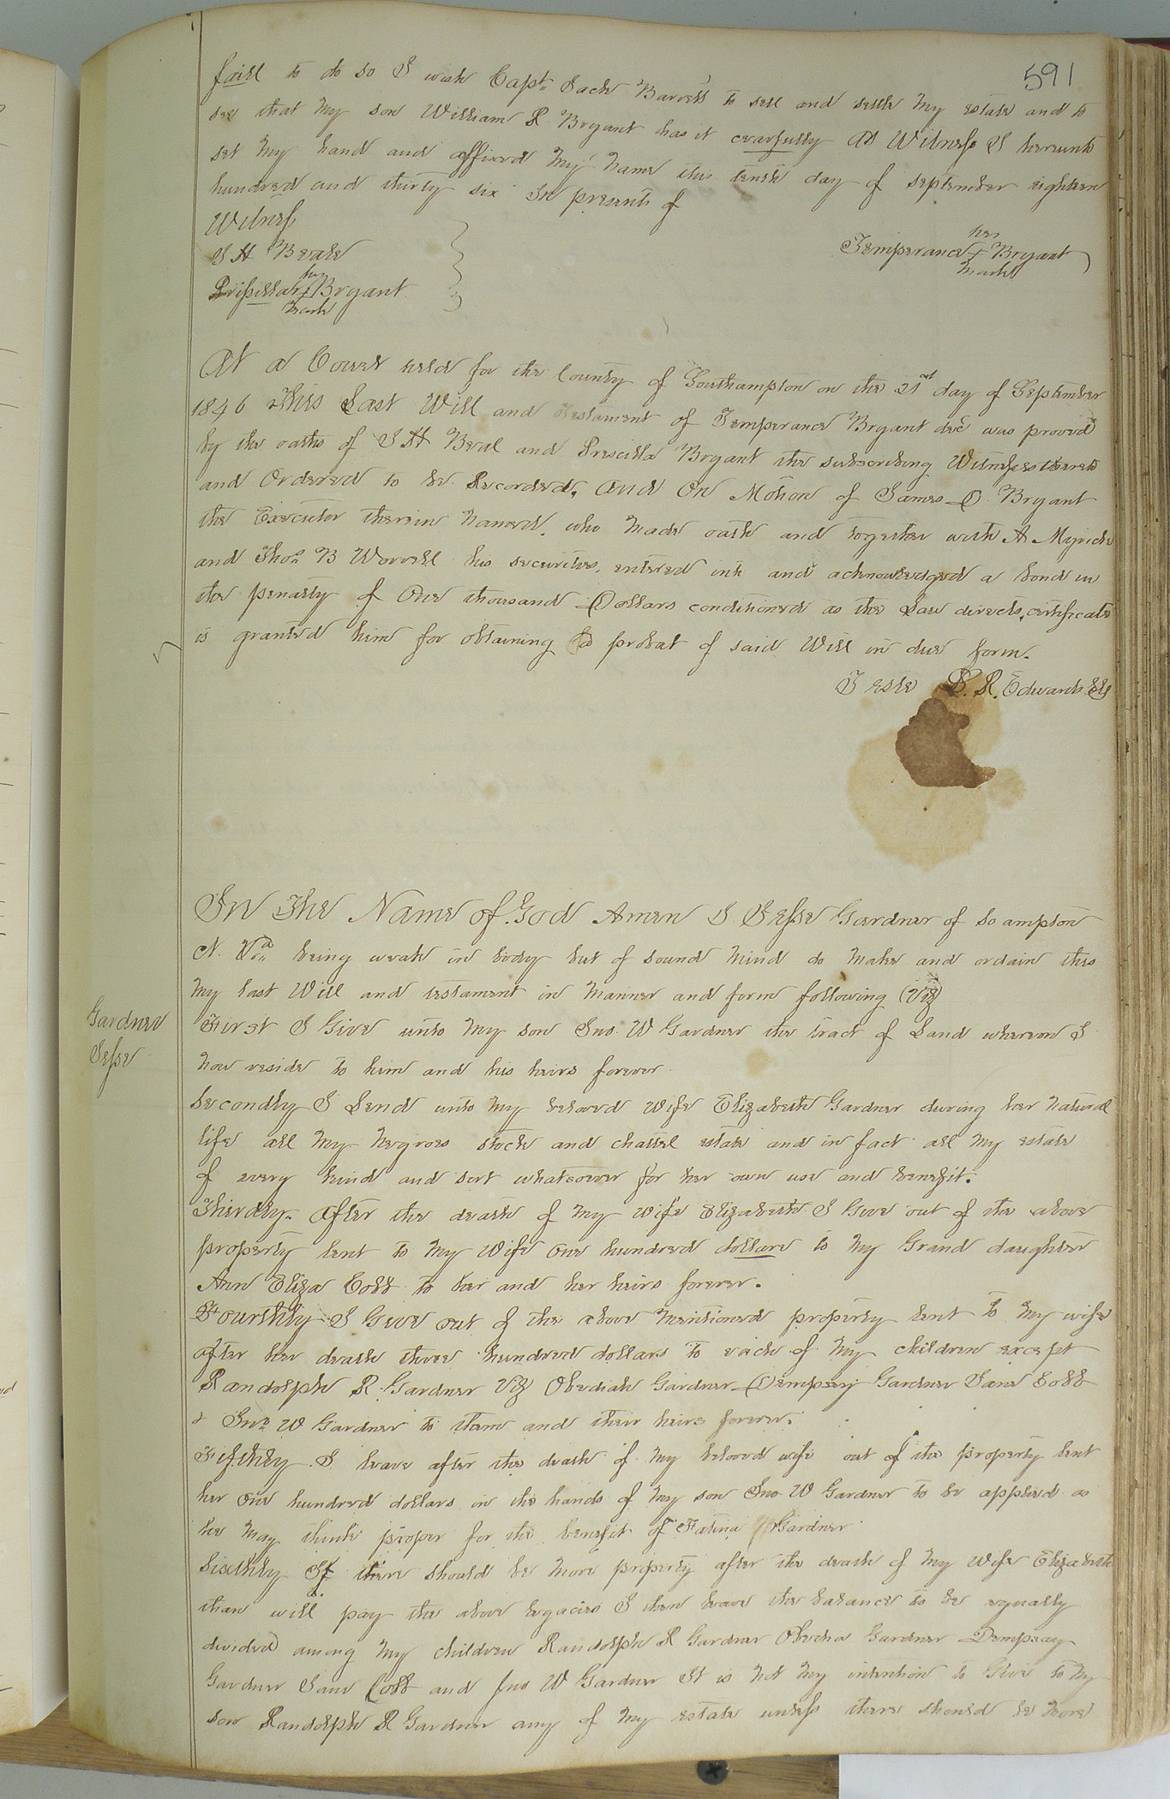 591
faill to do so I wish Capt. Jack Barrett to sell and settle my estate and to
see that my son William R Bryant has it cearfully As Witness I hereunto
set my hand and affixed my name this tenth day of september eighteen
hundred and thirty six In presents of
Witness
J H Beale
her
Temperance + Bryant
mark
her
Prissillar + Bryant
mark
At a Court held for the County of Southampton on the 21st day of September
1846 This Last Will and Testament of Temperance Bryant decd was prooved
by the oaths of J H Beal and Prescilla Bryant the subscribing Witnesses thereto
and Ordered to be Recorded, And On Motion of James D Bryant
the Executor therein named, who made oath and together with A Myrick
and Thos. B Worrell his securities, entered into and acknowledged a bond in
the penalty of One thousand Dollars conditioned as the Law directs, certificate
is granted him for obtaining a probat of said Will in due form.
Teste L. R. Edwards Clk
In The Name of God Amen I Jesse Gardner of So ampton
Va. being weak in body but of sound mind do make and ordain this
my last Will and testament in manner and form following (Viz)
Gardner
Jesse
First I Give unto my son Jno. W Gardner the tract of Land whereon I
now reside to him and his heirs forever
Secondly I Lend unto my beloved wife Elizabeth Gardner during her natural
life all my negroes stock and chattel estate and in fact all my estate
of every kind and sort whatsoever for her own use and benefit.
Thierdly. After the death of my wife Elizabeth I Give out of the above
property lent to my wife one hundred dollars to my Grand daughter
Ann Eliza Cobb to her and her heirs forever.
Fourthly I Give out of the above mentioned property lent to my wife
after her death three hundred dollars to each of my children except
Randolph R. Gardner Viz Obediah Gardner Dempsey Gardner Jane Cobb
& Jno. W Gardner to them and their heirs forever.
Fifthly I leave after the death of my beloved wife out of the property lent
her one hundred dollars in the hands of my son Jno W Gardner to be applied as
he may think proper for the benefit of Gardner
Sixthly If there should be more property after the death of my wife Elizabeth
than will pay the above legacies I then leave the balance to be equally
divided among my children Randolph R Gardner Obedia Gardner Dempsey
Gardner Jane Cobb and Jno W Gardner It is not my intention to Give to my
son Randolph R Gardner any of my estate unless there should be more